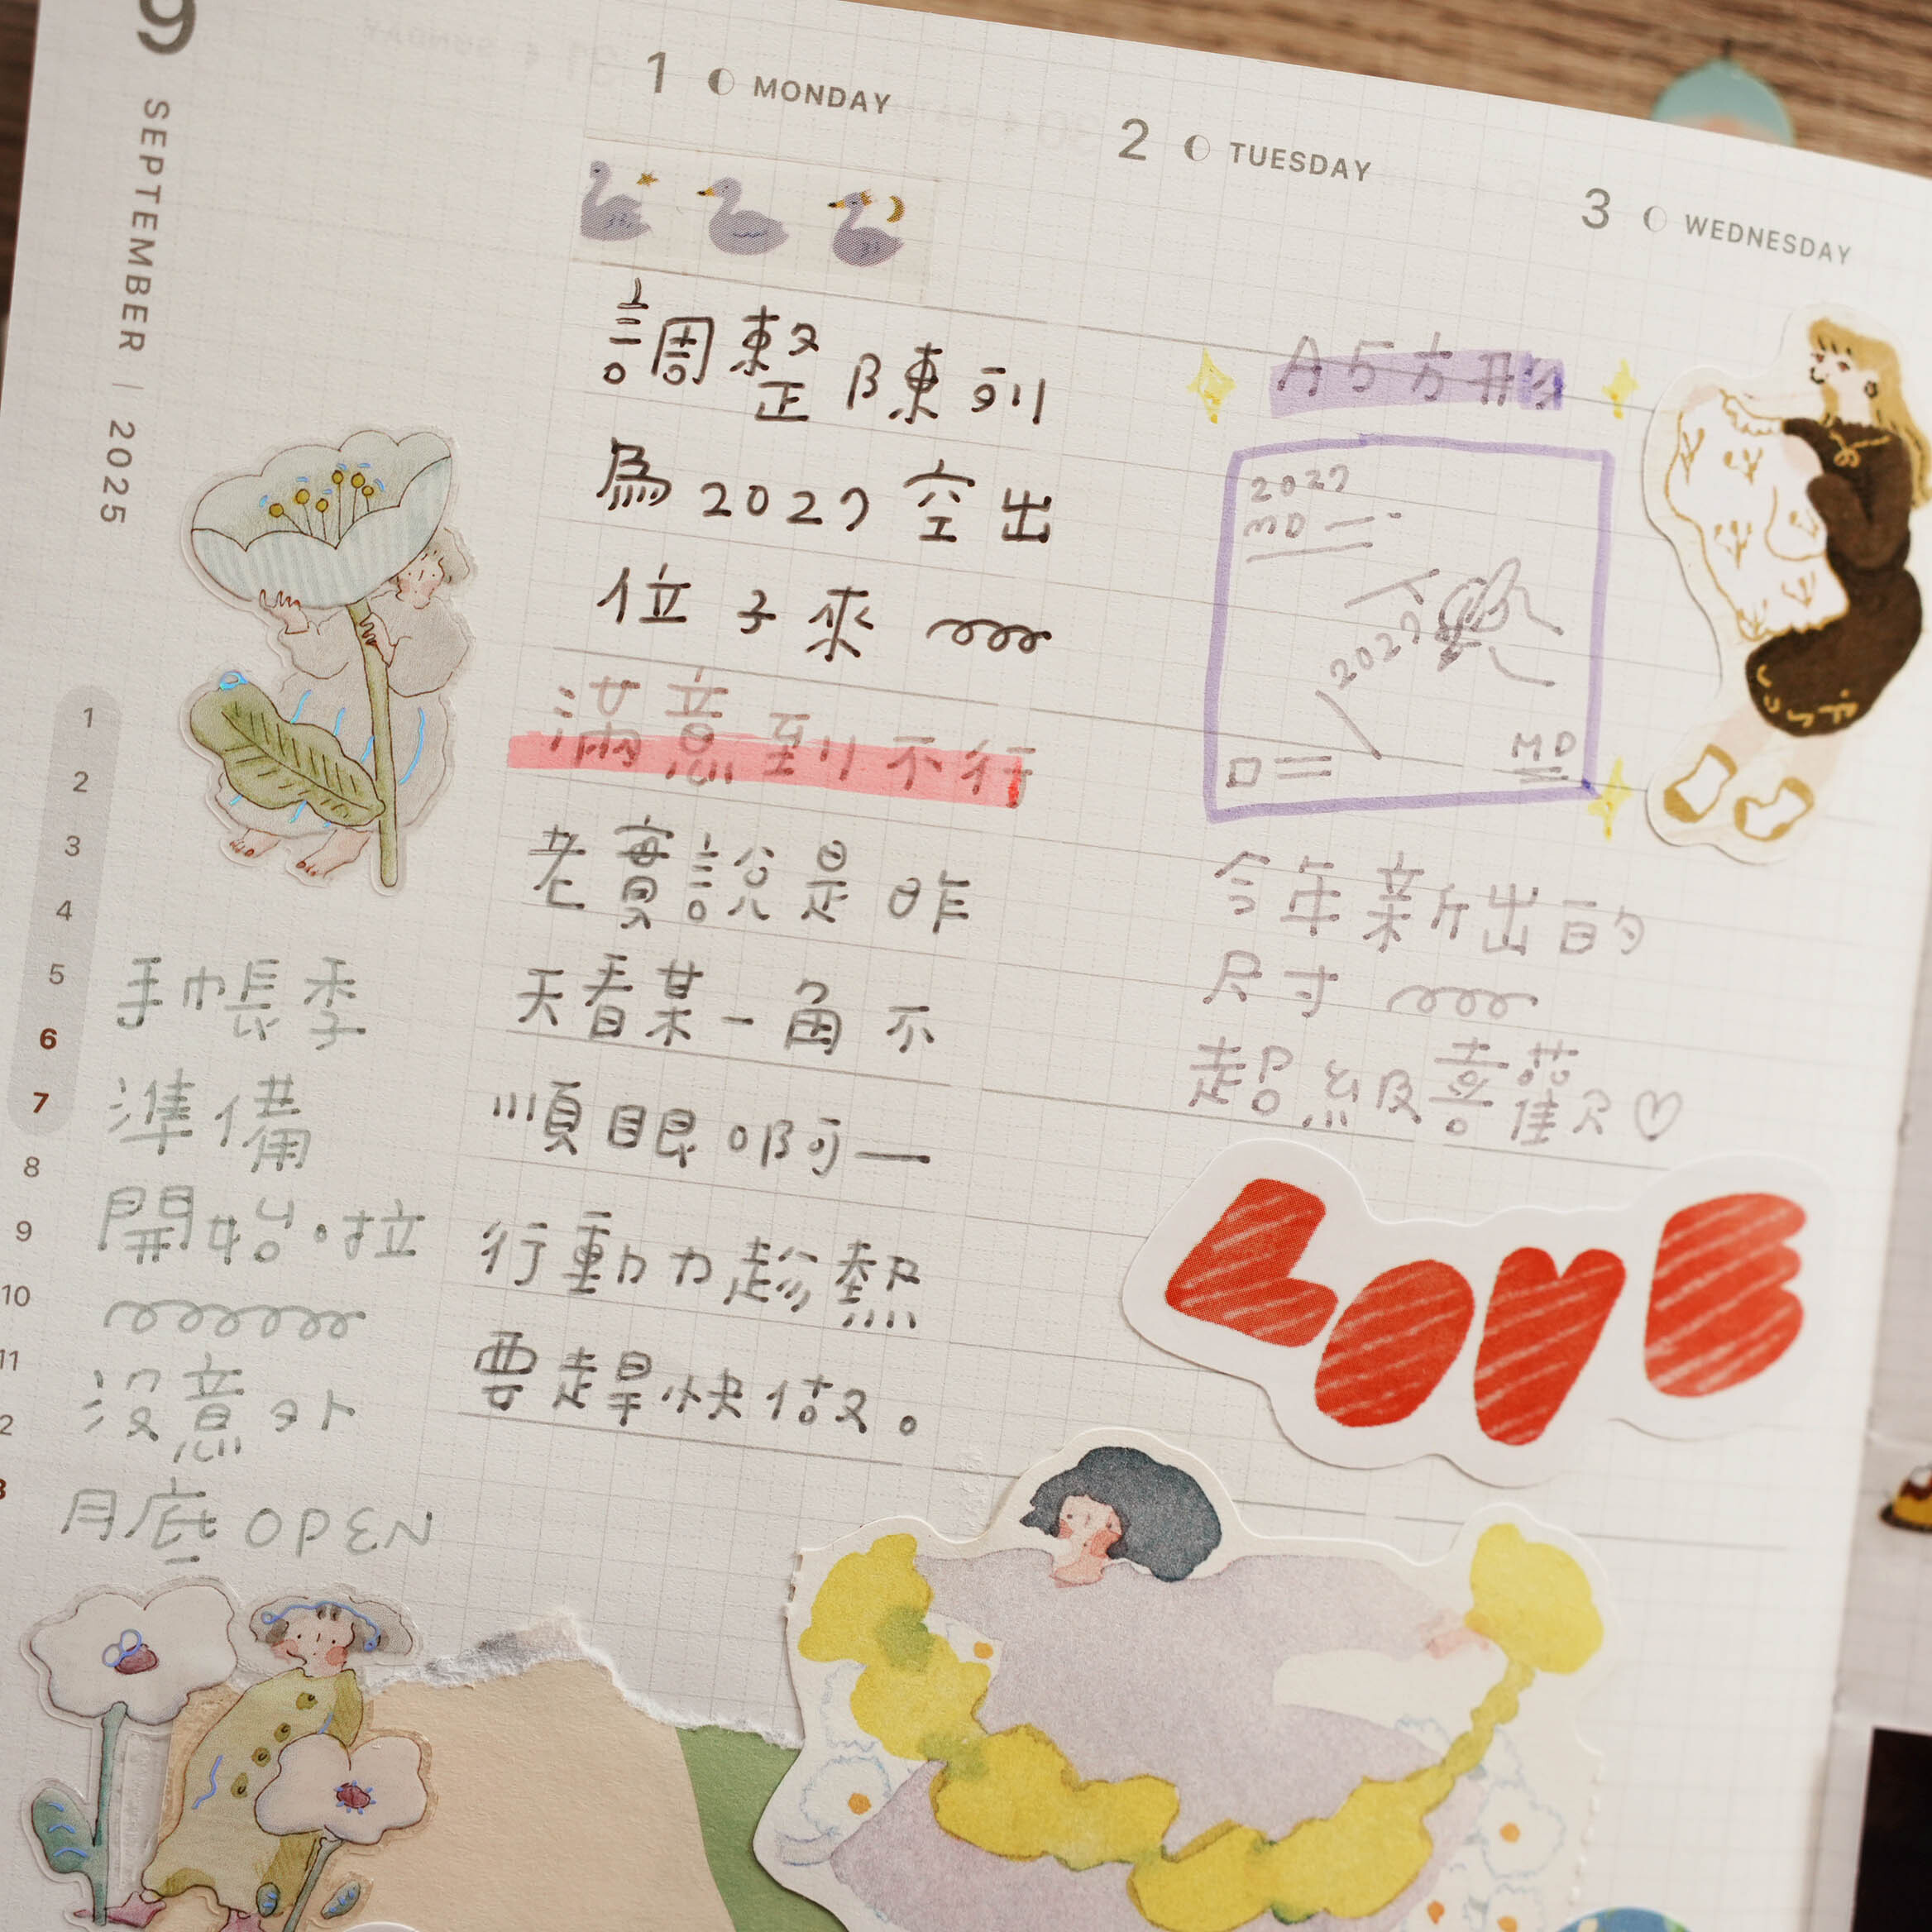 9
SEPTEMBER | 2025
1 MONDAY
2 TUESDAY
3 WEDNESDAY
1
2
3
4
5
6
7
8
9
10
11
手帳季
準備
開始.拉
沒意外
月底OPEN
調整陳列
為2027空出
位子來
滿意到不行
老實說是昨
天看某一角不
順眼啊一
行動力趁熱
要趕快做。
A5方形
2027
MD
2027
MD
今年新出的
尺寸
超級喜歡♡
LOVE